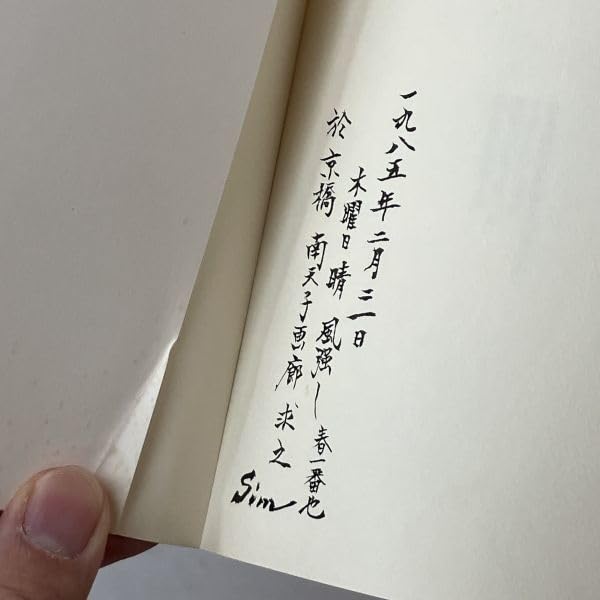 一九八五年二月二一日
木曜日 晴 風強し 春一番也
於京橋 南天子画廊 求之
Sim